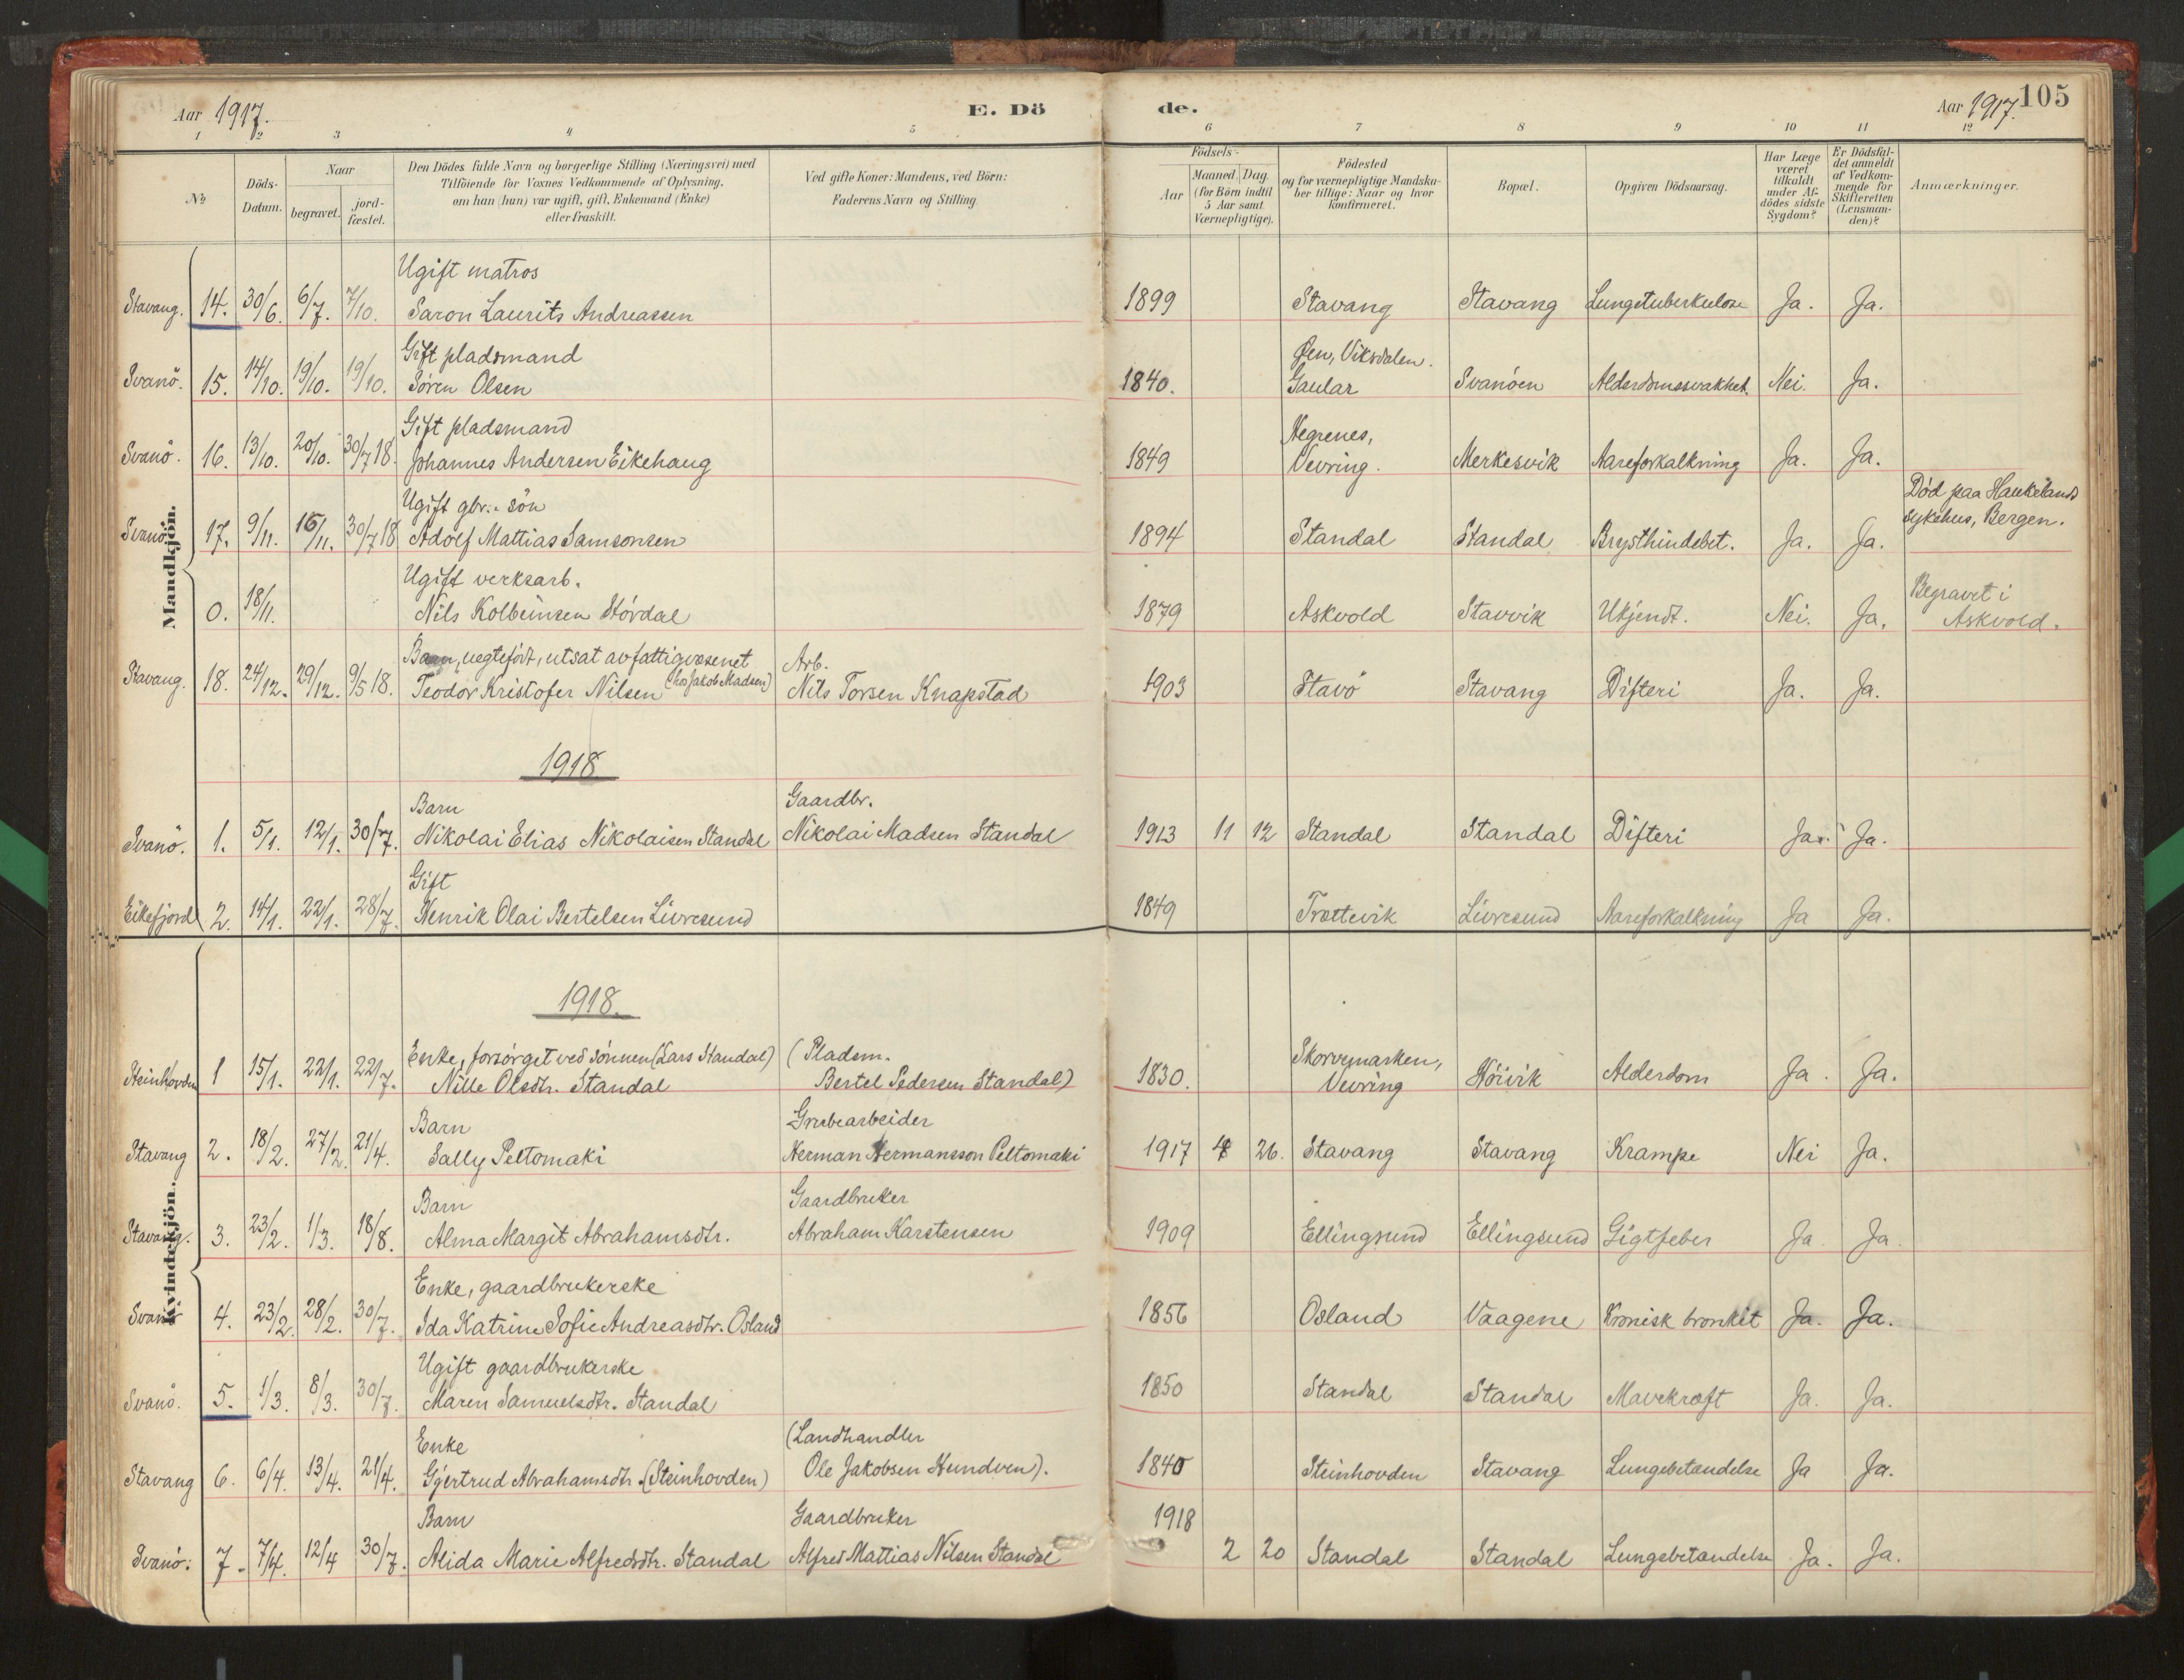 Aar 1917.
E. Dö
de.
Aar 1917.
105
1 2 3 4 5 6 7 8 9 10 11 12
No
Döds-Datum.
Naar
begravet.
jord-fæstet.
Den Dödes fulde Navn og borgerlige Stilling (Næringsvei) med
Tilföiende for Voxnes Vedkommende af Oplysning,
om han (hun) var ugift, gift, Enkemand (Enke)
eller fraskilt.
Ved gifte Koner: Mandens, ved Börn:
Faderens Navn og Stilling.
Födsels-
Aar
Maaned. Dag.
(for Börn indtil
5 Aar samt
Værnepligtige).
Födested
og for værnepligtige Mandska-
ber tillige: Naar og hvor
konfirmeret.
Bopæl.
Opgiven Dödsaarsag.
Har Læge
været
tilkaldt
under Af-
dödes sidste
Sygdom?
Er Dödsfal-
det anmeldt
af Vedkom-
mende for
Skifteretten
(Lensman-
den)?
Anmærkninger.
Mandkjön.
Ugift matros
Stavang. 14. 30/6. 6/7. 7/10. Saron Laurits Andreassen 1899 Stavang Stavang Lungetuberkulose Ja. Ja.
Gift pladsmand Øen, Viksdalen.
Svanö. 15. 14/10. 19/10. 19/10. Sören Olsen 1840. Gaular Svanöen Alderdomssvakhet. Nei. Ja.
Gift pladsmand Hegrenes,
Svanö. 16. 13/10. 20/10. 30/7 18. Johannes Andersen Eikehaug 1849 Vevring. Merkesvik Aareforkalkning Ja. Ja.
Ugift gbr.. sön Död paa Haukelands
sykehus, Bergen.
Svanö. 17. 9/11. 16/11. 30/7 18 Adolf Mattias Samsonsen 1894 Standal Standal Brysthindebet. Ja. Ja.
Ugift verksarb. Begravet i
0. 18/11. Nils Kolbeinsen Stördal 1879 Askvold Stavvik Ukjendt. Nei. Ja. Askvold.
Barn, uegtefödt, utsat av fattigvæsenet Arb.
Stavang. 18. 24/12. 29/12. 9/5 18. Teodor Kristofer Nilsen (hos Jakob Madsen) Nils Torsen Knapstad 1903 Stavö Stavang Difteri Ja. Ja.
1918
Barn Gaardbr.
Svanö. 1. 5/1. 12/1. 30/7. Nikolai Elias Nikolaisen Standal Nikolai Madsen Standal 1913 11 12 Standal Standal Difteri Ja. Ja.
Gift
Eikefjord 2. 14/1. 22/1. 28/7. Henrik Olai Bertelsen Livresund 1849 Trættevik Livresund Aareforkalkning Ja Ja.
Kvindekjön.
1918.
Enke, forsörget ved sönnen (Lars Standal) (Pladsm. Skorvemarken,
Steinhovden 1 15/1. 22/1. 22/7. Nille Olsdtr. Standal Bertel Pedersen Standal) 1830. Vevring Höivik Alderdom Ja. Ja.
Barn Grubearbeider
Stavang 2. 18/2. 27/2. 21/4. Sally Peltomaki Herman Hermansson Peltomaki 1917 4 26. Stavang Stavang Krampe Nei Ja.
Barn Gaardbruker
Stavang. 3. 23/2. 1/3. 18/8. Alma Margit Abrahamsdtr. Abraham Karstensen 1909 Ellingsund Ellingsund Gigtfeber Ja Ja
Enke, gaardbrukerske
Svanö 4. 23/2. 28/2. 30/7. Ida Katrine Sofie Andreasdtr. Osland 1856 Osland Vaagene Kronisk bronkit Ja. Ja.
Ugift gaardbrukerske
Svanö. 5. 1/3. 8/3. 30/7. Maren Samuelsdtr. Standal 1850 Standal Standal Mavekræft Ja. Ja.
Enke (Landhandler
Stavang 6. 6/4. 13/4. 21/4. Gjertrud Abrahamsdtr. (Steinhovden) Ole Jakobsen Hundven). 1840 Steinhovden Stavang Lungebetændelse Ja Ja.
Barn Gaardbruker 1918
Svanö. 7. 7/4. 12/4 30/7. Alida Marie Alfredsdtr. Standal Alfred Mattias Nilsen Standal 2 20 Standal Standal Lungebetændelse Ja. Ja.